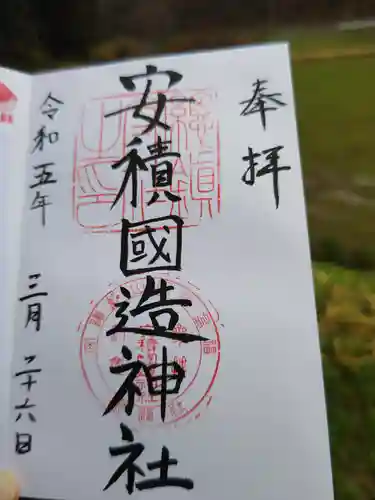 奉拝
安積國造神社
令和五年 三月 二十六日